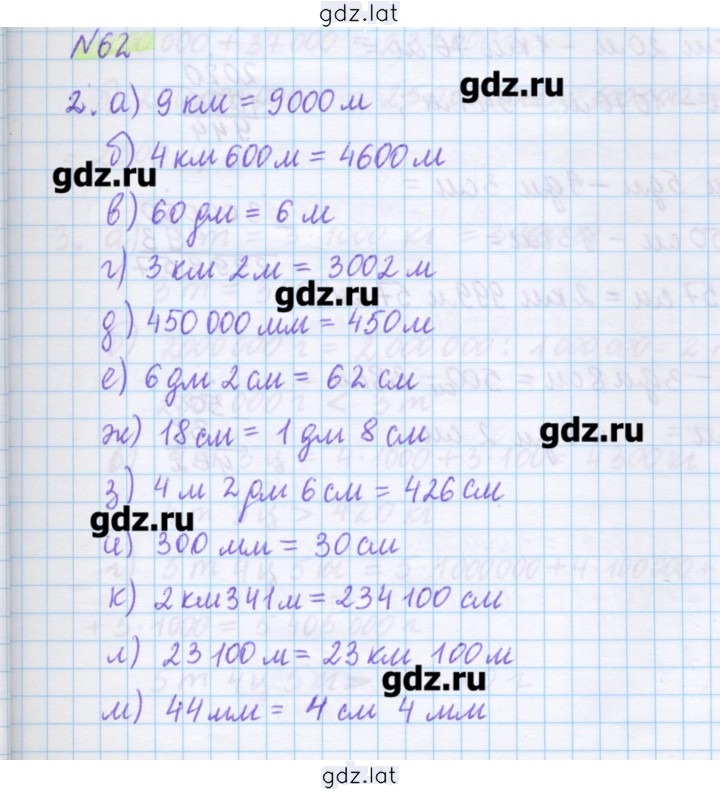 gdz.lat
№62
2. а) 9 км = 9000 м
gdz.ru
б) 4 км 600 м = 4600 м
gdz.ru
в) 60 дм = 6 м
г) 3 км 2 м = 3002 м
gdz.ru
д) 450 000 мм = 450 м
е) 6 дм 2 см = 62 см
ж) 18 см = 1 дм 8 см
gdz.ru
з) 4 м 2 дм 6 см = 426 см
gdz.ru
и) 300 мм = 30 см
к) 2 км 341 м = 234 100 см
л) 23 100 м = 23 км 100 м
gdz.ru
м) 44 мм = 4 см 4 мм
gdz.lat